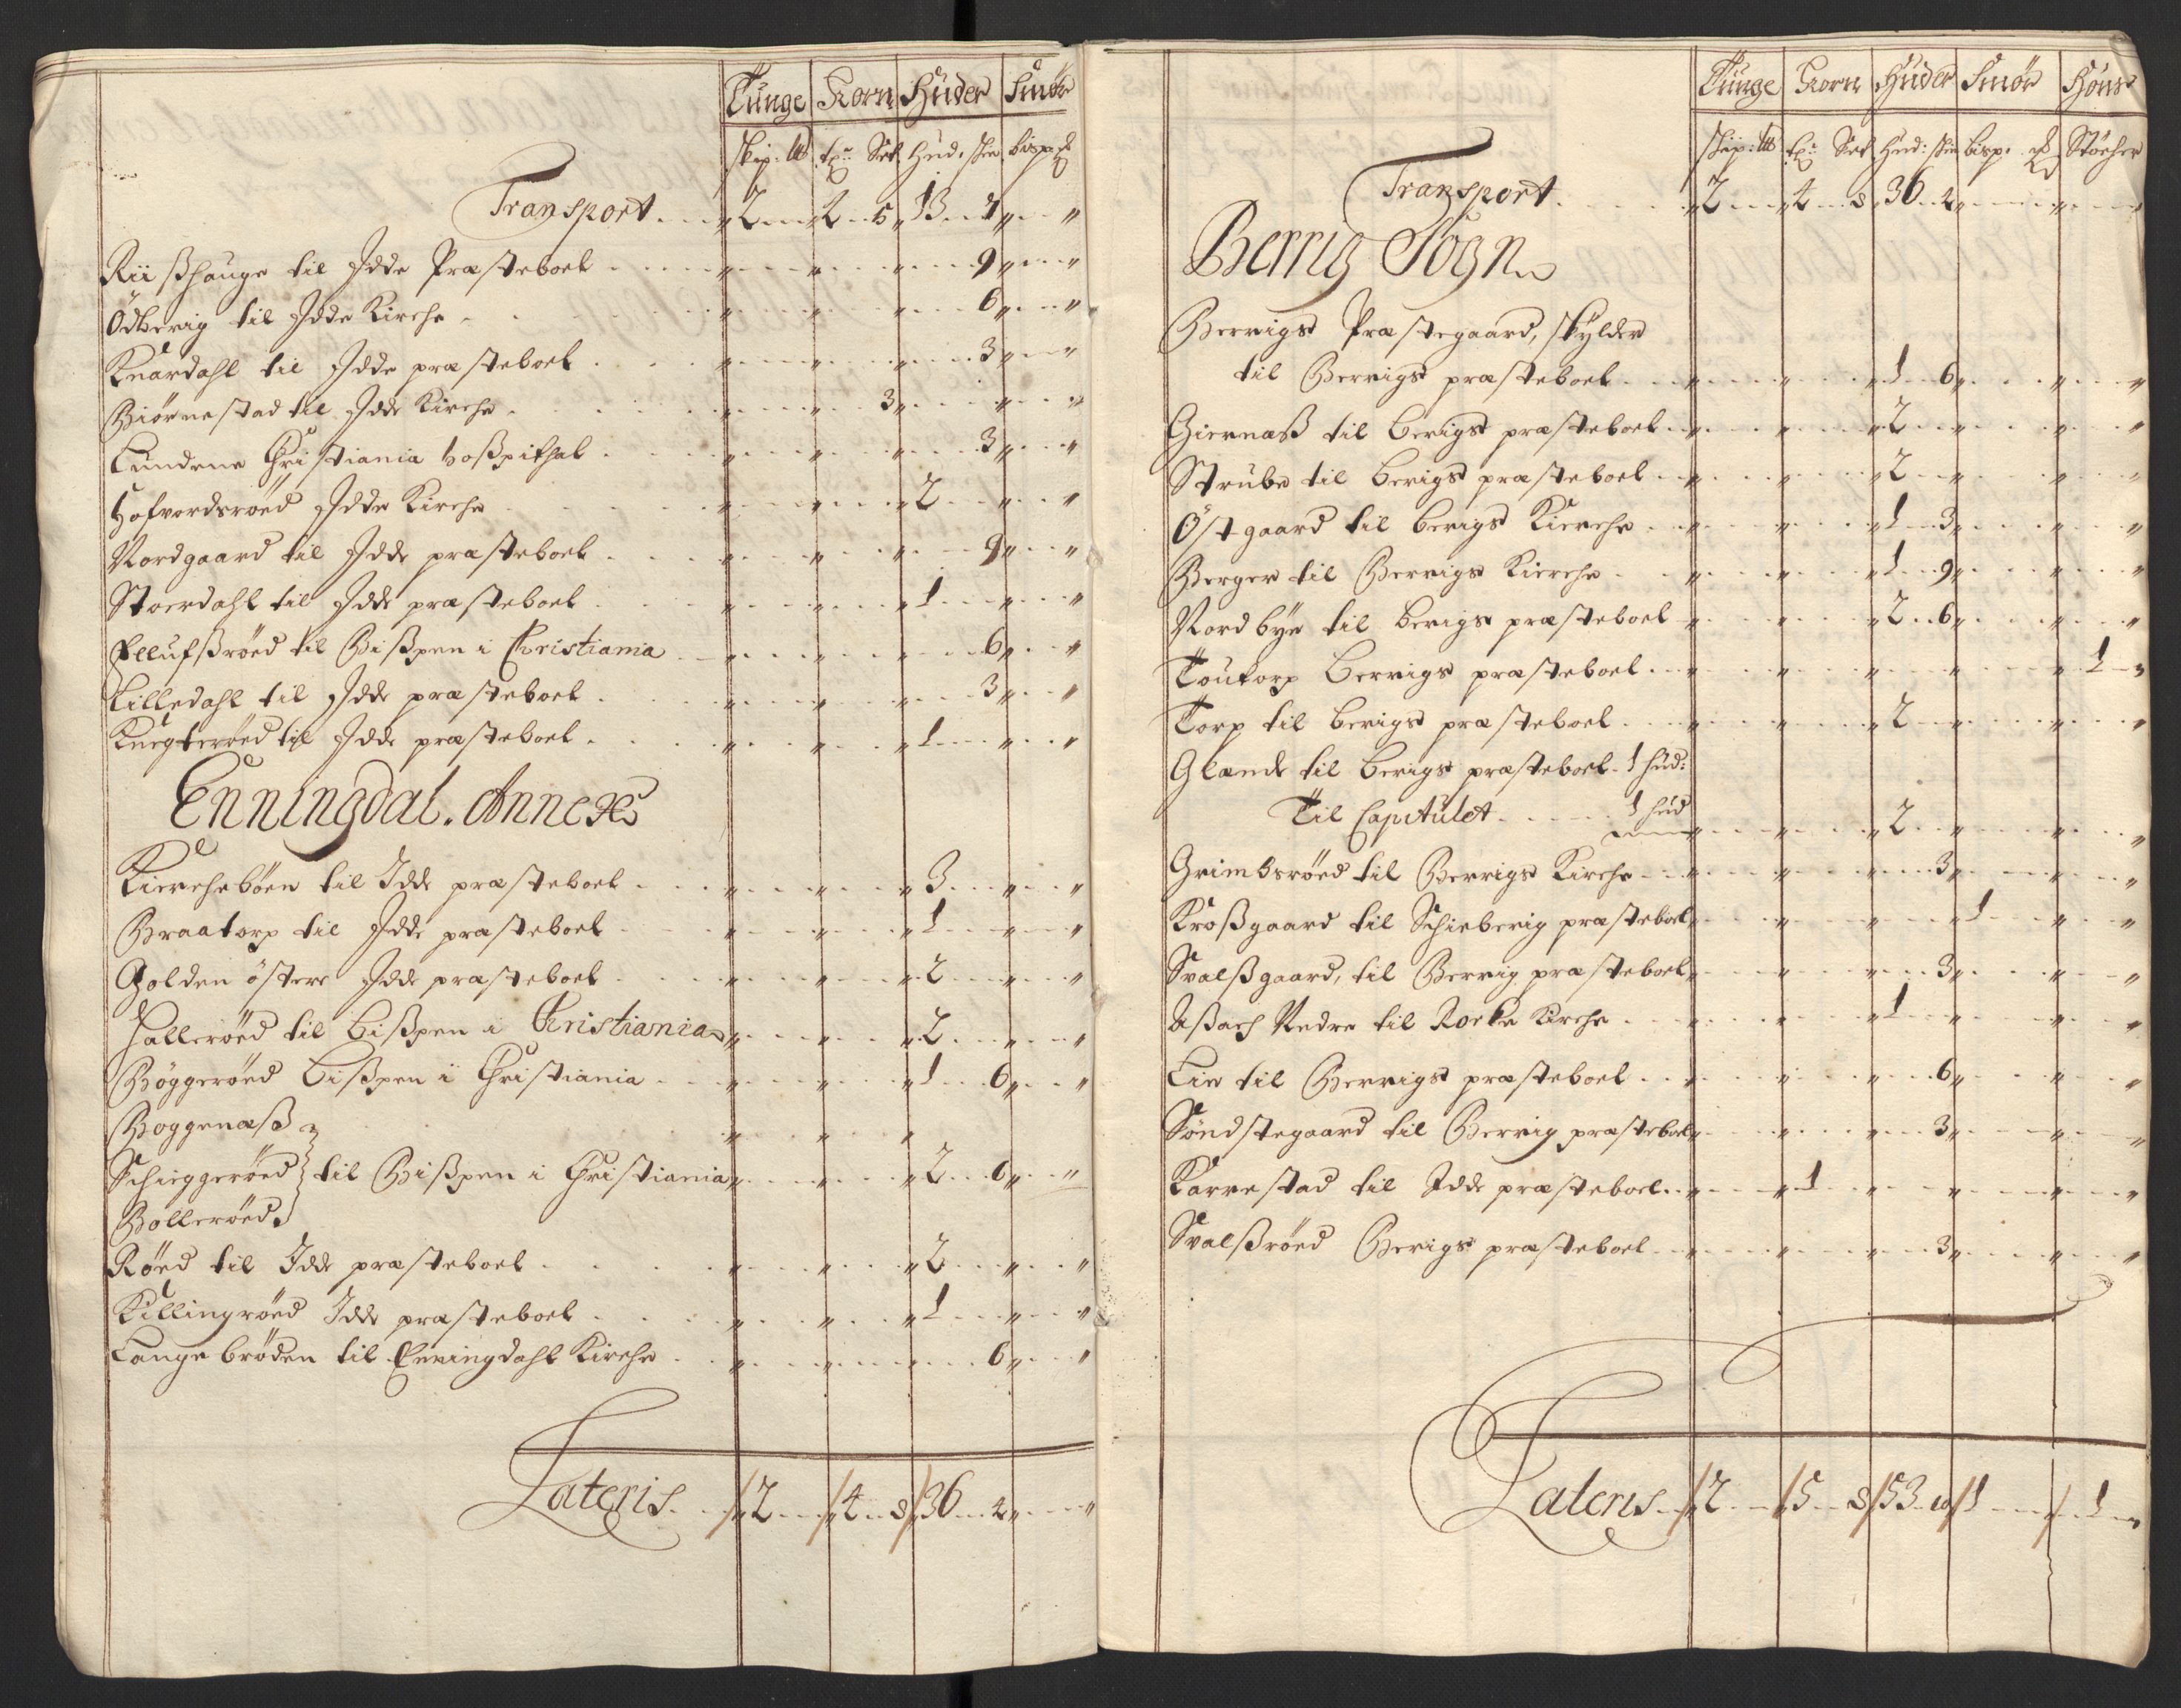 Tunge Korn Huder Smör
skip: lb tr Set Hud. skin bisp.
Transport. . . „ 2 . . „ 2 . . 5 „ 13 . . 7 „ . . „
Riisshauge til Idde Præsteboel . . . . „ . . „ . . „ . . 9 „ . . „
Ödberig til Idde Kirche . . . . „ . . „ . . „ . . 6 „ . . „
Knardahl til Idde præsteboel . . . „ . . „ . . „ . . 3 „ . . „
Biörnestad til Idde Kirche . . . . „ . . „ . . 3 „ . . „ . . „
Lundene Christiania Hosspithal . . . „ . . „ . . „ . . 3 „ . . „
Hofvordsröed Idde Kirche . . . „ . . „ . . „ 2 . . „ . . „
Nordgaard til Idde præsteboel . . . „ . . „ . . „ . . 9 „ . . „
Stoerdahl til Idde præsteboel . . . „ . . „ . . „ 1 . . „ . . „
Ellufssröed til Bisspen i Christiania . . „ . . „ . . „ . . 6 „ . . „
Lilledahl til Idde præsteboel . . . „ . . „ . . „ . . 3 „ . . „
Knegteröed til Idde præsteboel . . . „ . . „ . . „ 1 . . „ . . „
Enningdal. Annex
Kiercheböen til Idde præsteboel . . . „ . . „ . . „ 3 . . „ . . „
Braatorp til Idde præsteboel . . . „ . . „ . . „ 1 . . „ . . „
Holden östere Idde præsteboel . . . „ . . „ . . „ 2 . . „ . . „
Halleröed til Bisspen i Christiania „ . . „ . . „ 2 . . „ . . „
Böggeröed Bisspen i Christiania . . . „ . . „ . . „ 1 . . 6 „ . . „
Boggenæss . . . „ . . „ . . „
Schieggeröed til Bisspen i Christiania „ . . „ . . „ 2 . . 6 „ . . „
Bolleröed
Röed til Idde præsteboel . . . „ . . „ . . „ 2 . . „ . . „
Killingröed Idde præsteboel . . . „ . . „ . . „ 1 . . „ . . „
Langebröden til Enningdahl Kirche . . „ . . „ . . „ . . 6 „ . . „
Lateris . . „ 2 . . „ 4 . . 8 „ 36 . . 4 „ . . „
Tunge Korn Huder Smör Höns
skip: lb tr Set Hud: skin bisp. Støcher
Transport . . . „ 2 . . „ 4 . . 8 „ 36 . . 4 „ . . „ . . „
Berrig Sogn
Berrigs Præstegaard, skylder
til Berrigs præsteboel . . . „ . . „ . . „ 1 . . 6 „ . . „ . . „
Giernæss til Berigs præsteboel . . „ . . „ . . „ 2 . . „ . . „ . . „
Strube til Berigs præsteboel . . „ . . „ . . „ 2 . . „ . . „ . . „
Östgaard til Berigs Kierche . . „ . . „ . . „ 1 . . 3 „ . . „ . . „
Berger til Berrigs Kierche . . „ . . „ . . „ 1 . . 9 „ . . „ . . „
Nordbye til Berigs præsteboel „ . . „ . . „ 2 . . 6 „ . . „ . . „
Toutorp Berrigs præsteboel . . „ . . „ . . „ . . „ . . „ 1 . . „
Torp til Berigs præsteboel . . . „ . . „ . . „ 2 . . „ . . „ . . „
Glende til Berigs præsteboel . 1 hud:
Til Capitulet . . . . 1 hud „ . . „ . . „ 2 . . „ . . „ . . „
Grimbsröed til Berrigs Kirche . . „ . . „ . . „ . . 3 „ . . „ . . „
Krossgaard til Schieberig præsteboel „ . . „ . . „ . . „ 1 . . „ . . „
Svalssgaard, til Berrig præsteboel „ . . „ . . „ . . 3 „ . . „ . . „
Assach Nedre til Rocke Kirche . . „ . . „ . . „ 1 . . „ . . „ . . „
Lie til Berrigs præsteboel . . „ . . „ . . „ . . 6 „ . . „ . . „
Söndstegaard til Berrig præsteboel „ . . „ . . „ . . 3 „ . . „ . . „
Karrestad til Idde præsteboel . . „ . . „ 1 . . „ . . „ . . „ . . „
Svalssröed Berigs præsteboel . . „ . . „ . . „ . . 3 „ . . „ . . „
Lateris . „ 2 . . „ 5 . . 8 „ 53 . . 10 „ 1 . . „ 1 . . „